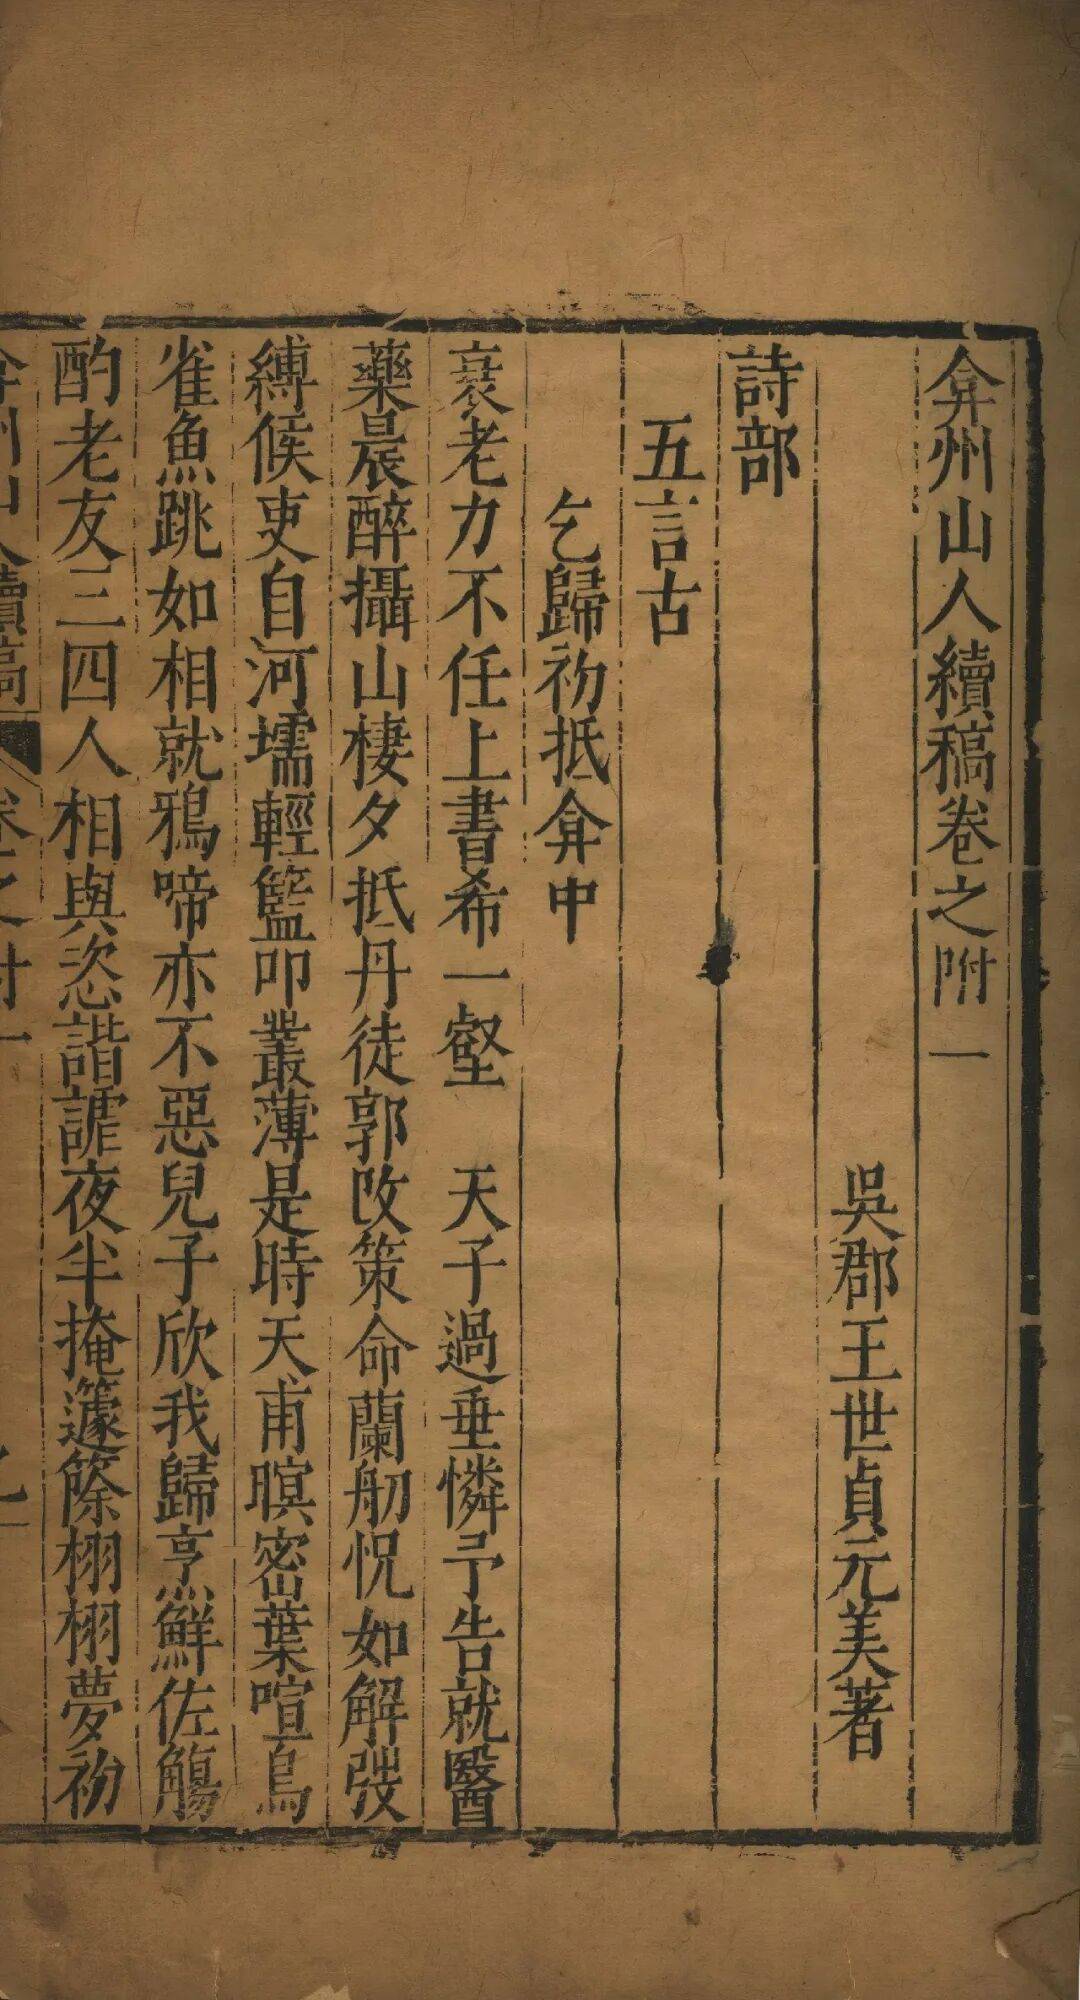 弇州山人續稿卷之附一
吳郡王世貞元美著
詩部
五言古
乞歸初抵弇中
衰老力不任上書希一壑　天子過垂憐予告就醫
藥晨醉攝山棲夕抵丹徒郭改策命蘭舠怳如解弢
縛候吏自河壖輕籃叩叢薄是時天甫暝密葉喧烏
雀魚跳如相就鴉啼亦不惡兒子欣我歸烹鮮佐觴
酌老友三四人相與恣諧謔夜半掩籧篨栩栩夢初
弇州山人續稿　卷之附一